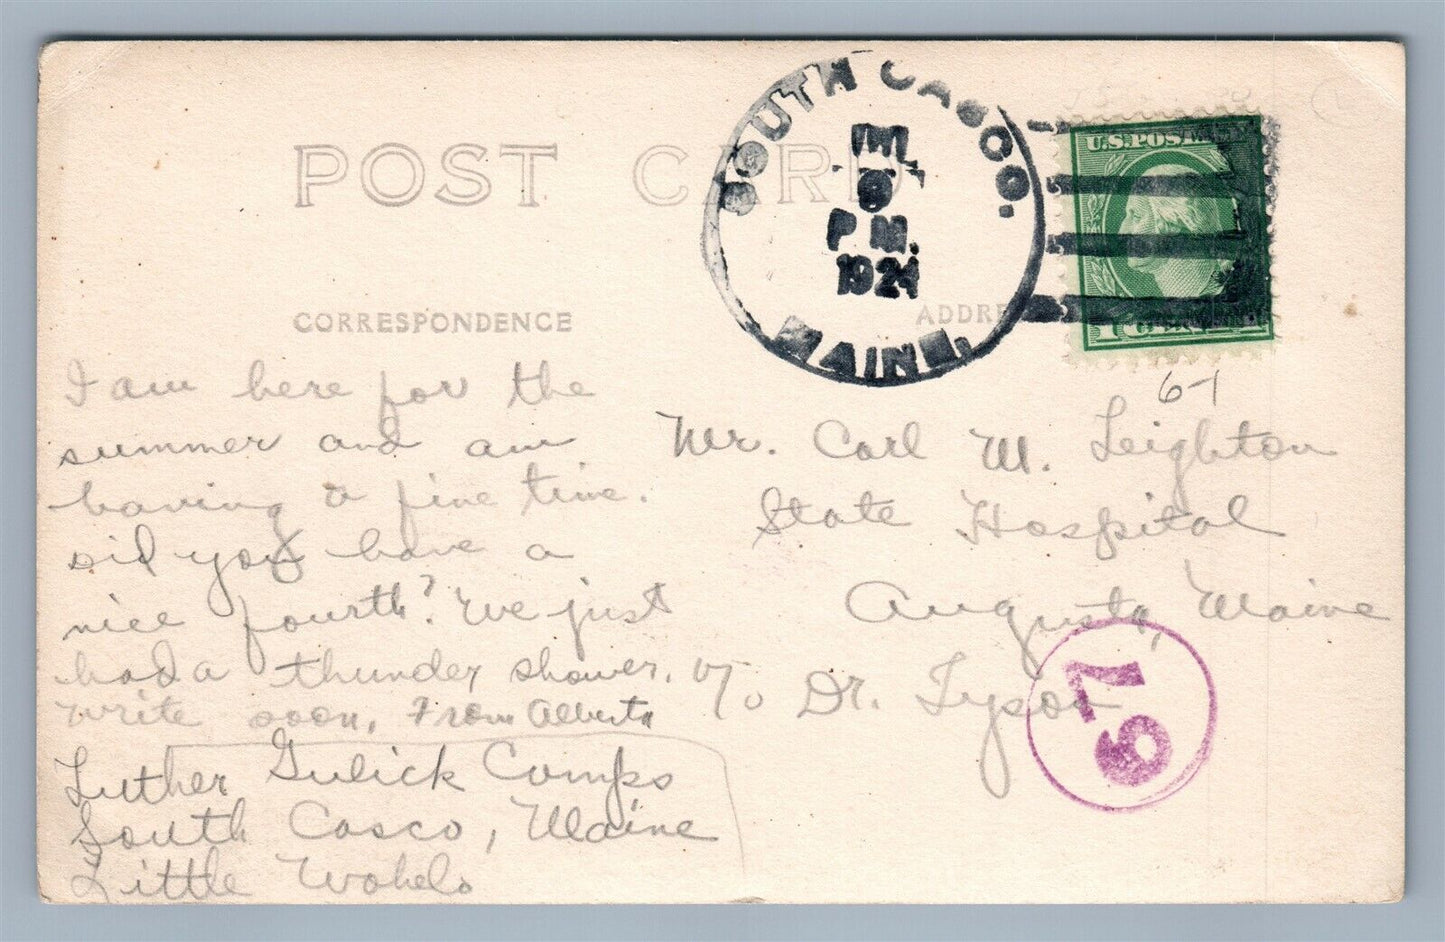 POST CARD
SOUTH CASCO.
JUL
9
P M.
1924
MAINE.
U.S. POSTAGE
CORRESPONDENCE
ADDRE
6-1
I am here for the
summer and am
having a fine time.
did you have a
nice fourth? We just
had a thunder shower.
write soon, From Alberta
Luther Gulick Camps
South Casco, Maine
Little Wohelo
Mr. Carl M. Leighton
State Hospital
Augusta, Maine
c/o Dr. Tyson
79